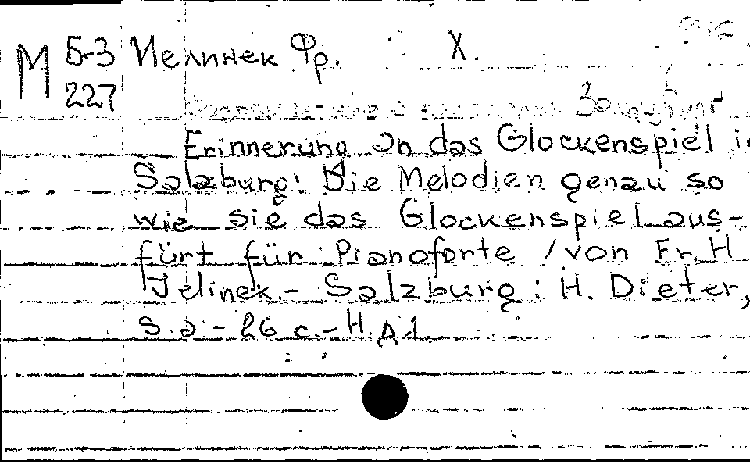 М Б-3 Иелинек Фр. X.
227
Erinnerung an das Glockenspiel in
Salzburg: Die Melodien genau so
wie sie das Glockenspiel aus-
fürt für Pianoforte / von Fr. H
Jelinek - Salzburg: H. Dieter,
S.a - 26 c. - H. A1